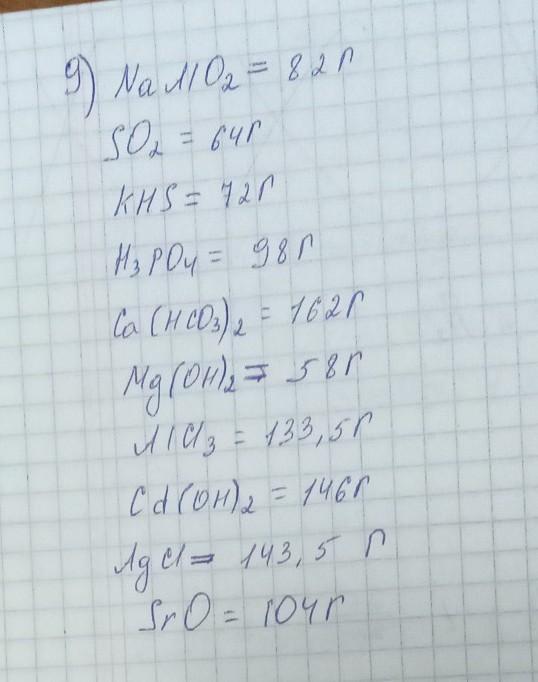 9) NaAlO2 = 82 г
SO2 = 64г
KHS = 72г
H3PO4 = 98 г
Ca(HCO3)2 = 162г
Mg(OH)2 = 58г
AlCl3 = 133,5г
Cd(OH)2 = 146г
AgCl = 143,5 г
SrO = 104г